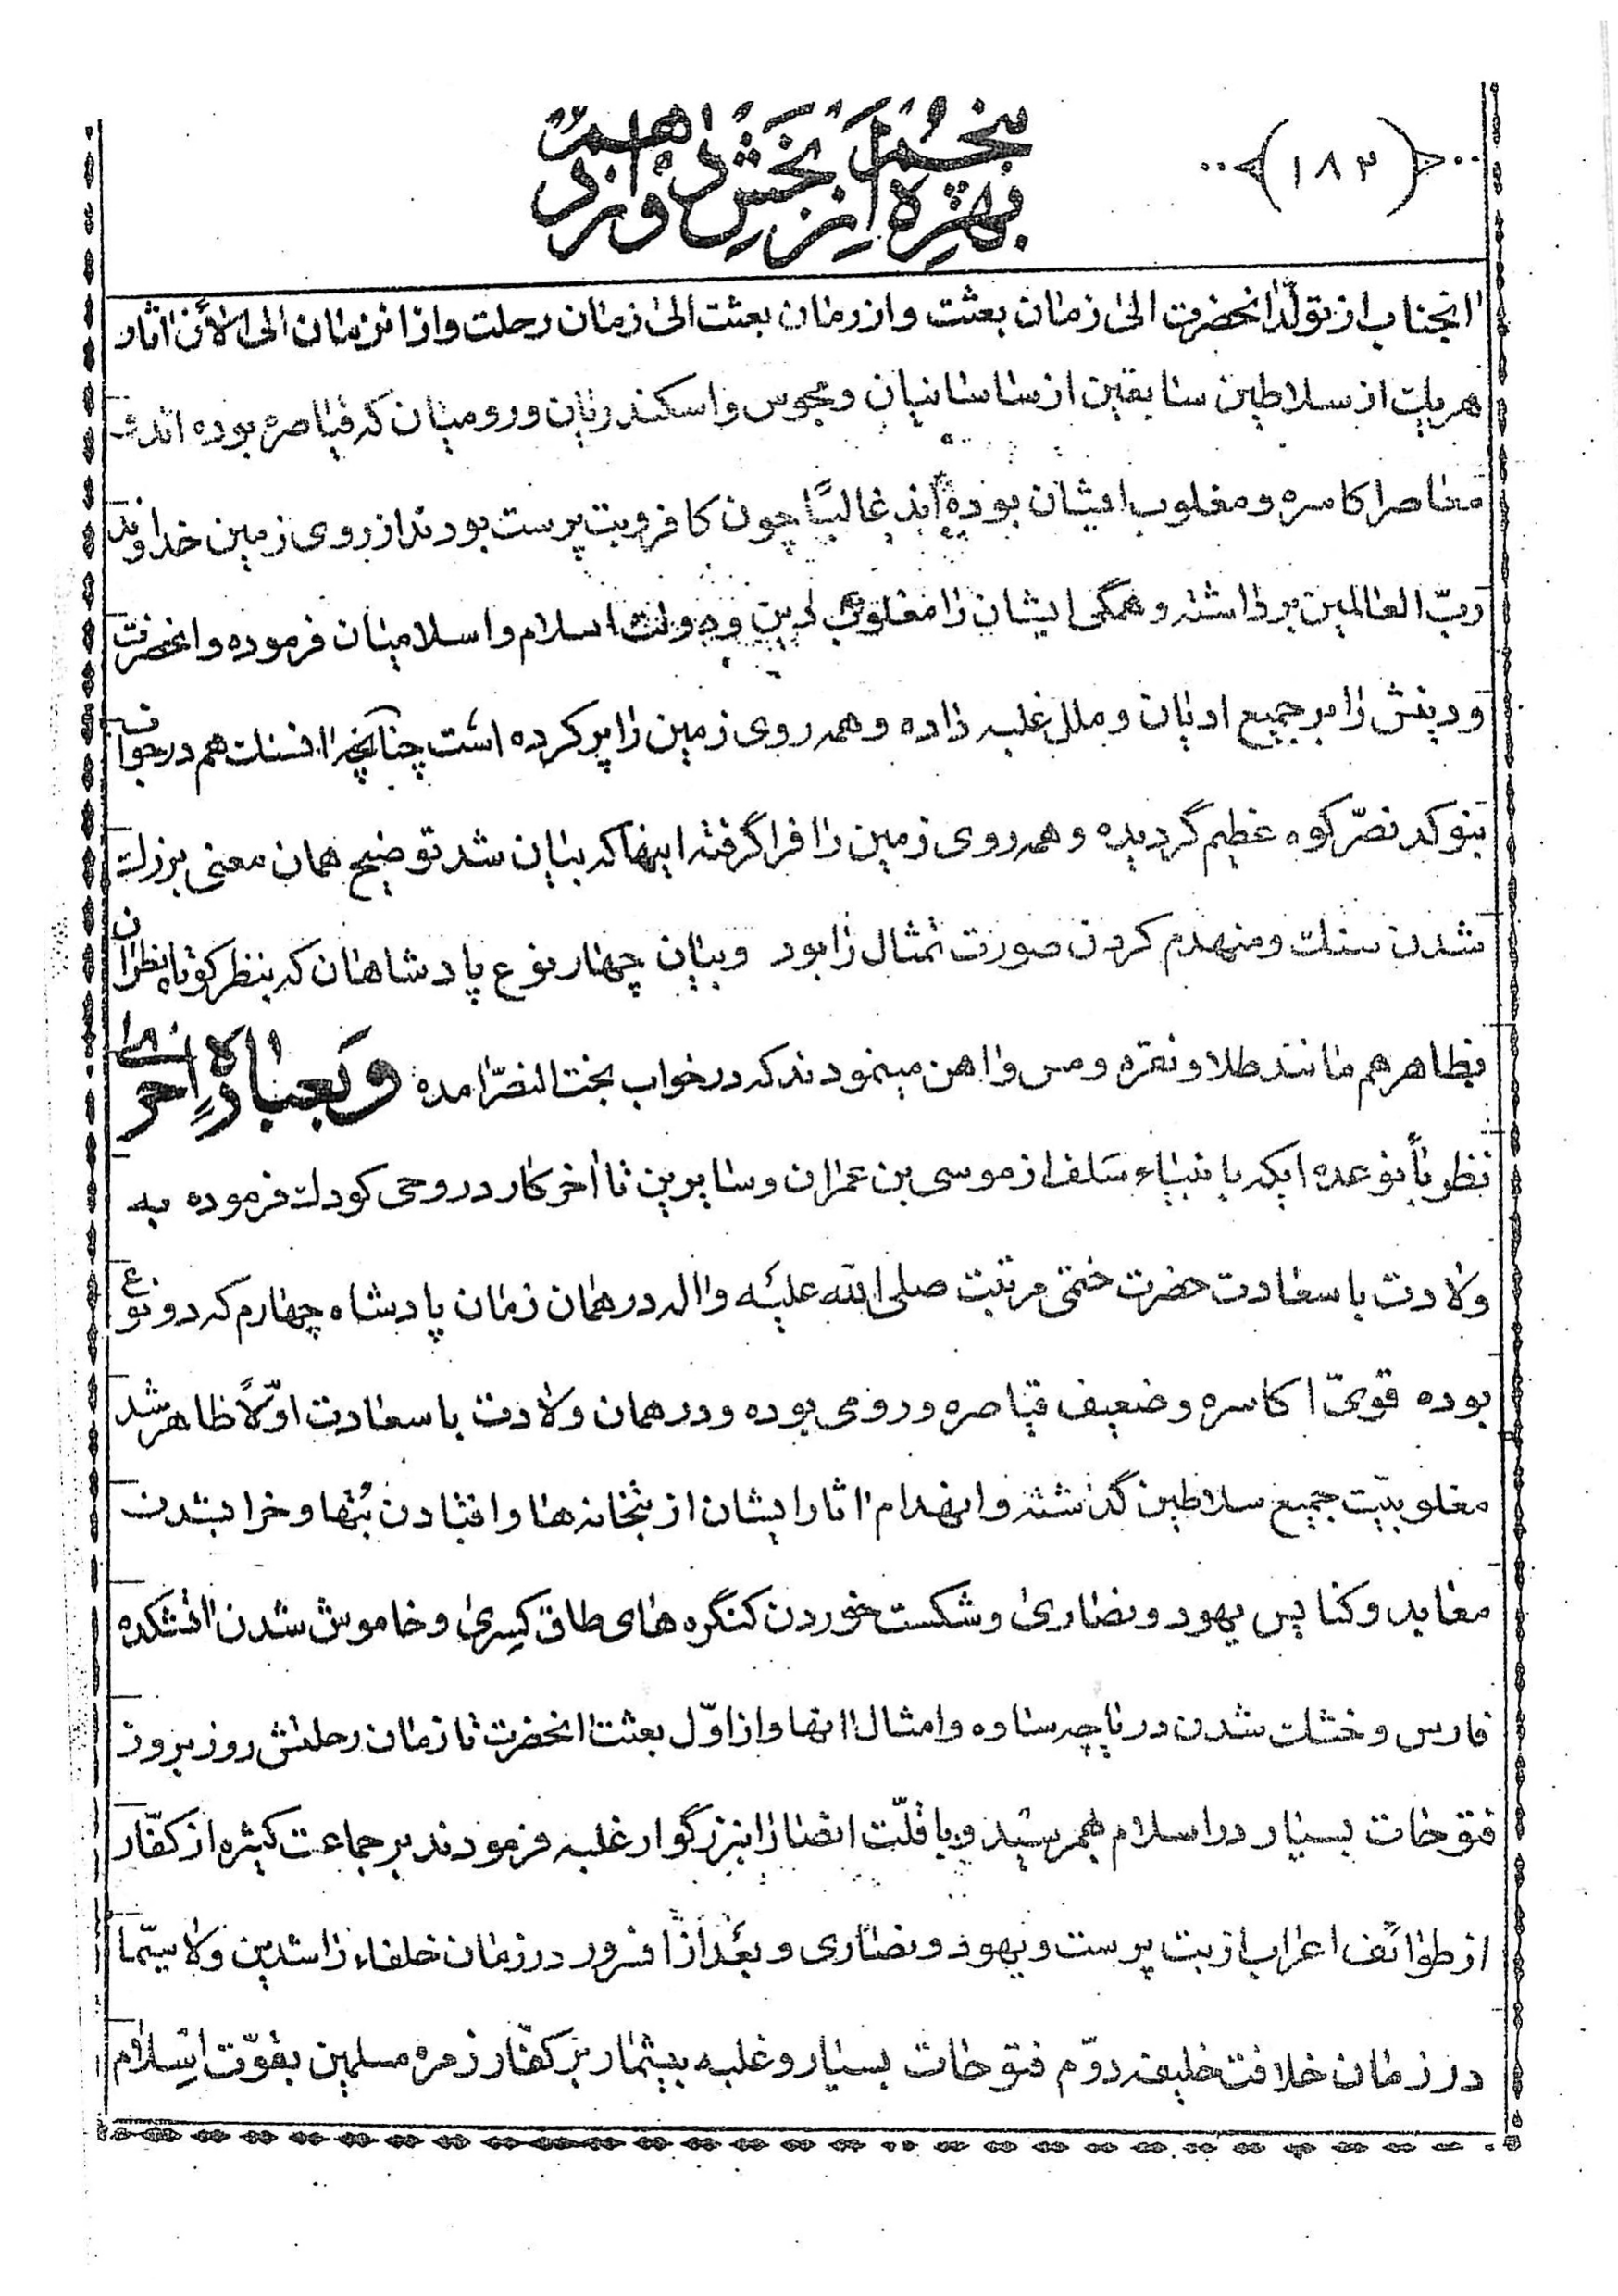 (۱۸۳)
پنجمُ از بَخشِ دُوازدَهم
بهره
انجناب از تولّد انحضرت الیٰ زمان بعثت و از زمان بعثت الیٰ زمان رحلت و از انزمان الی الأن اثار
هریك از سلاطین سابقین از ساسانیان و مجوس و اسکندریان و رومیان که قیاصره بوده اند و
معاصر اکاسره و مغلوب ایشان بوده اند غالبًا چون کافر و بت پرست بودند از روی زمین خداوند
ربّ العالمین برداشته و همگی ایشان را مغلوب دین و دولت اسلام و اسلامیان فرموده و انحضرت
و دینش را بر جمیع ادیان و ملل غلبه داده و همه روی زمین را پر کرده است چنانچه انسنك هم در خواب
بنوکد نصّر کوه عظیم گردیده و همه روی زمین را فرا گرفته اینها که بیان شد توضیح همان معنی بزرك
شدن سنك و منهدم کردن صورت تمثال را بود و بیان چهار نوع پادشاهان که بنظر کوتاه نظران
بظاهر هم مانند طلا و نقره و مس و اهن مینمودند که در خواب بخت النصّر امده وَبعبارةٍ اُخریٰ
نظر بأنوعده ایکه بانبیاء سَلف از موسی بن عمران و سایرین تا اخر کار در وحی کودك فرموده به
ولادت با سعادت حضرت ختمی مرتبت صلی الله علیه و اله در همان زمان پادشاه چهارم که دو نوع
بوده قویّ اکاسره و ضعیف قیاصره و رومی بوده و در همان ولادت با سعادت اوّلاً ظاهر شد
مغلوبیّت جمیع سلاطین گذشته و انهدام اثار ایشان از بتخانه ها و افتادن بُتها و خرابشدن
معابد و کنایس یهود و نصاریٰ و شکست خوردن کنگره های طاق کِسریٰ و خاموش شدن اتشکده
فارس و خشك شدن دریاچه ساوه و امثال انها و از اوّل بعثت انحضرت تا زمان رحلتش روز بروز
فتوحات بسیار در اسلام بهمرسید و با قلّت انصار انبزرگوار غلبه فرمودند بر جماعت کثیره از کفّار
از طوائف اعراب از بت پرست و یهود و نصاری و بعد از انسرور در زمان خلفاء راشدین و لا سیّما
در زمان خلافت خلیفه دوّم فتوحات بسیار و غلبه بیشمار بر کفّار زمره مسلمین بقوّت اسِلام